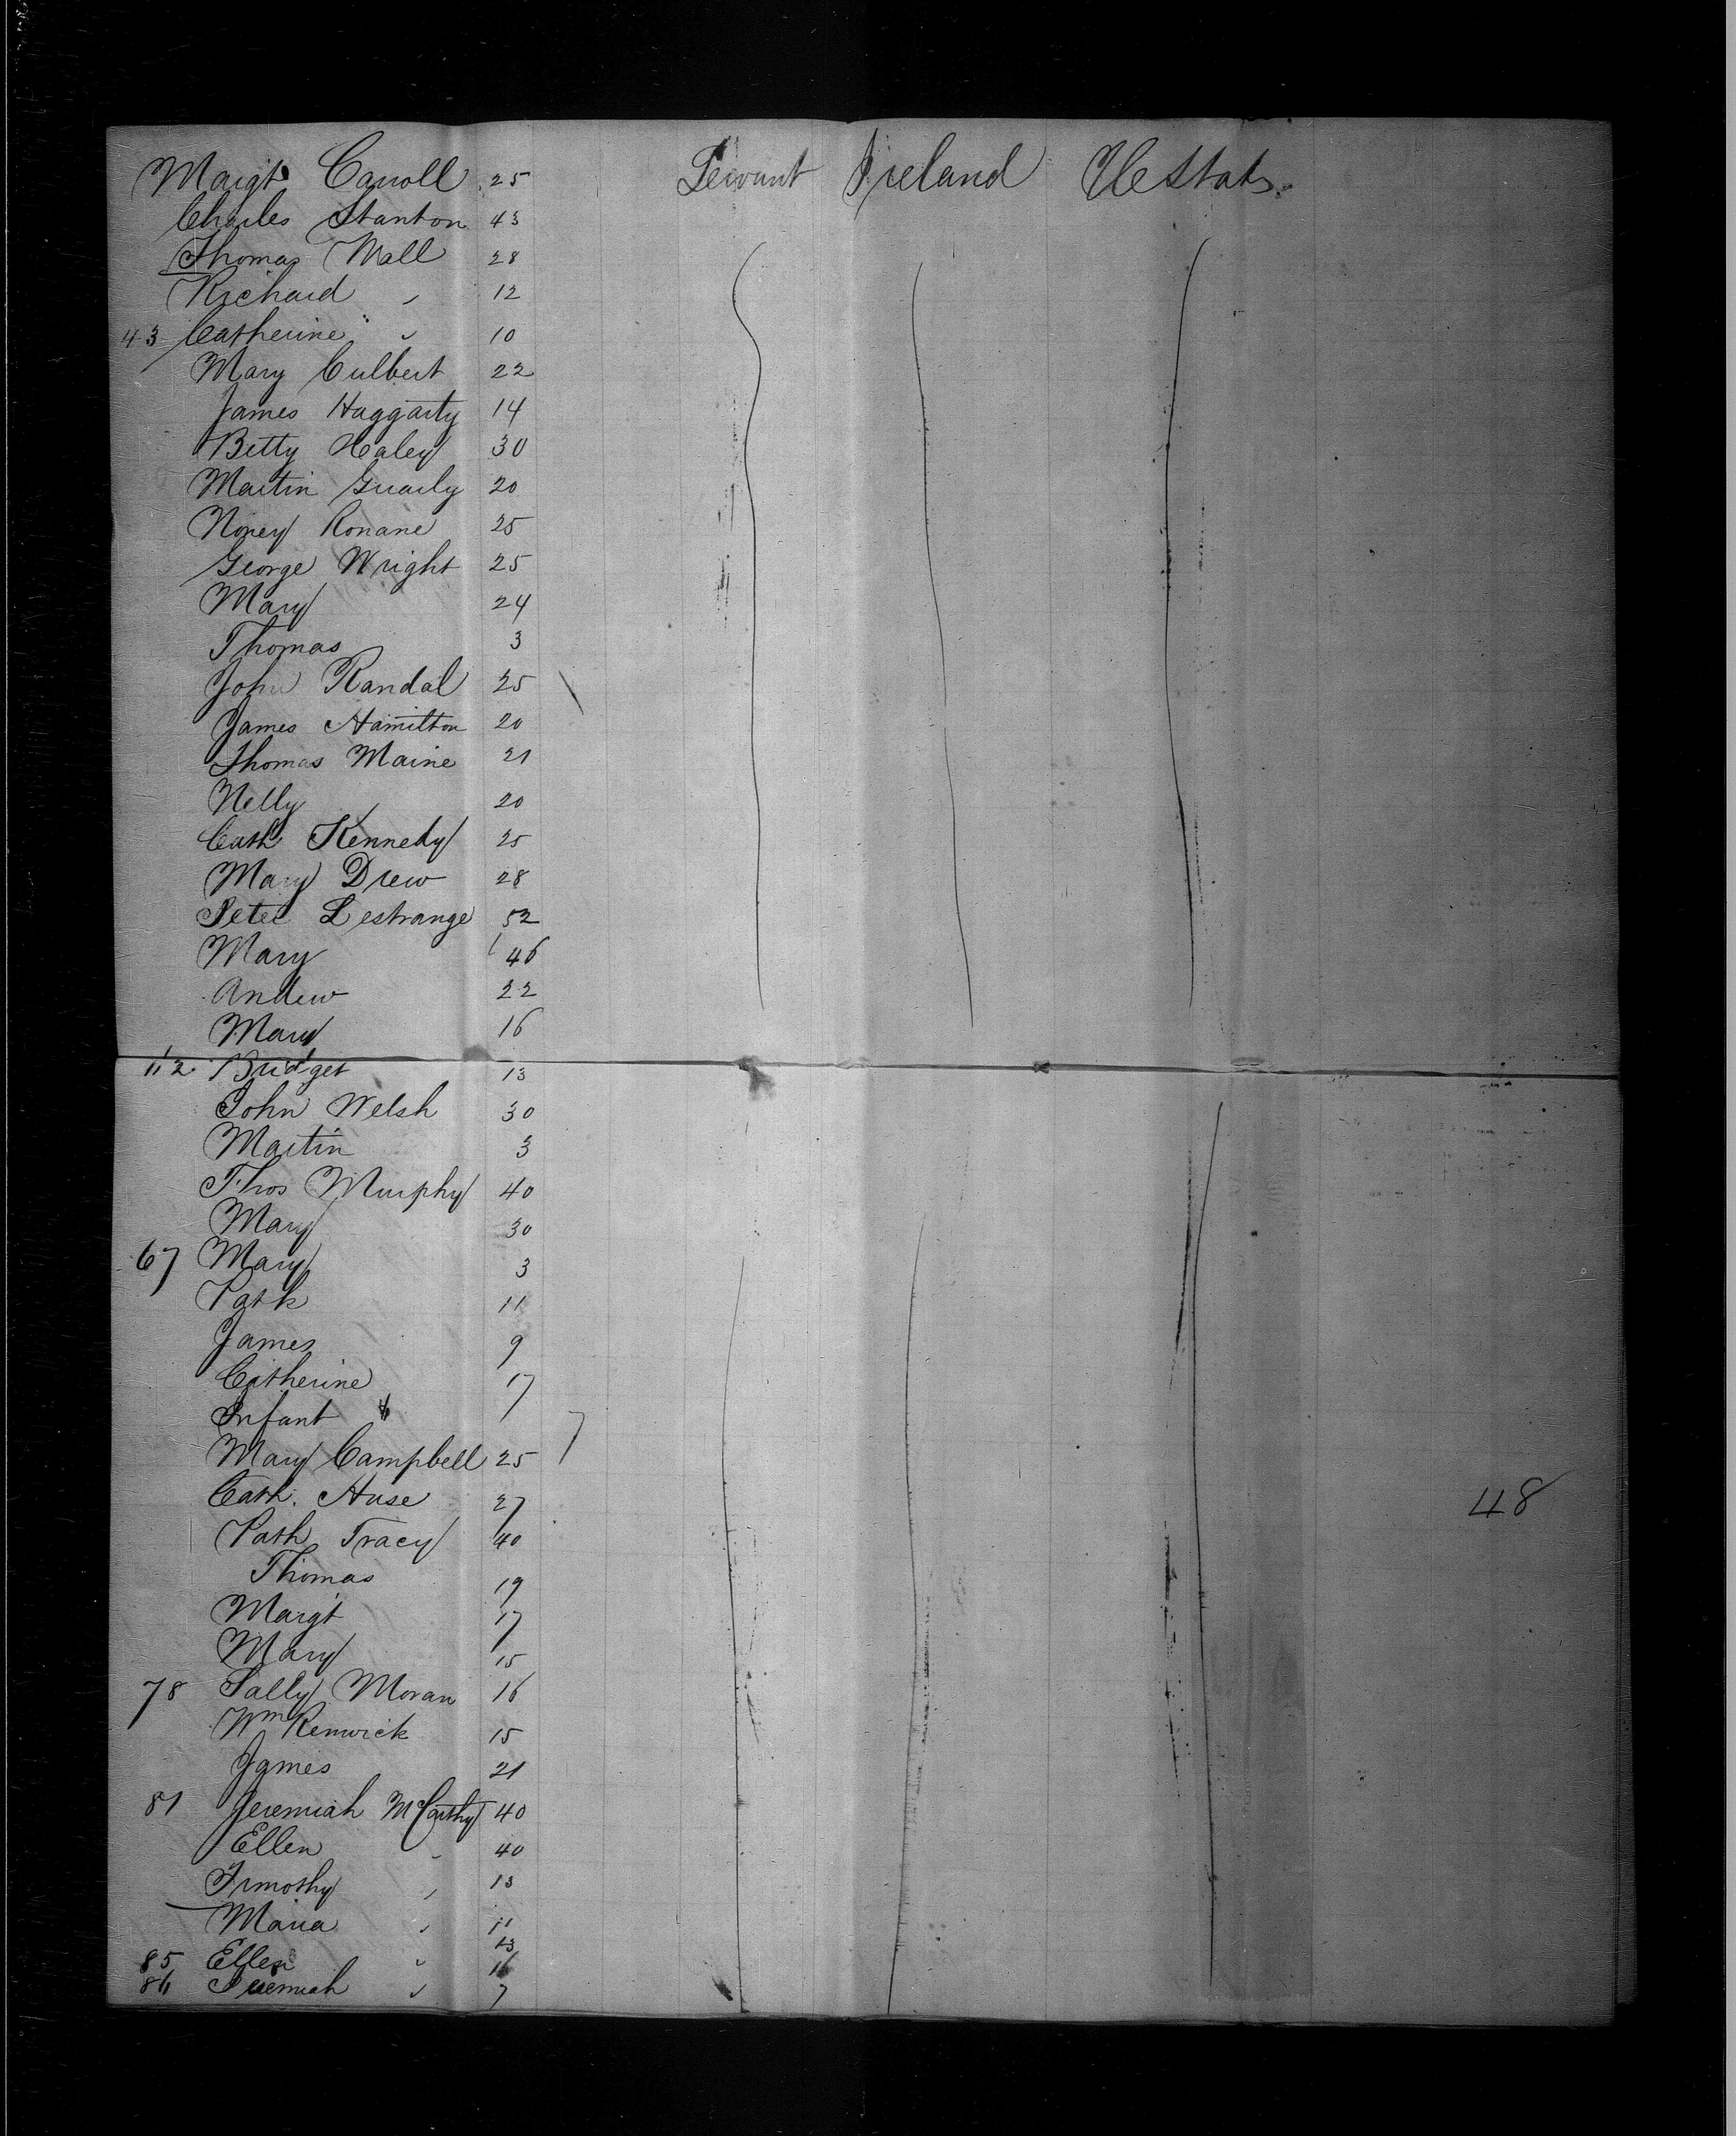 Margt Carroll 25 Servant Ireland UeStats
Charles Stanton 43
Thomas Wall 28
Richard " 12
43 Catherine " 10
Mary Culbert 22
James Haggarty 14
Betty Haley 30
Martin 20
Norey Ronane 25
George Wright 25
Mary 24
Thomas 3
John Randal 25
James Hamilton 20
Thomas Maine 21
Nelly 20
Cath Kennedy 25
Mary Drew 28
Peter Lestrange 52
Mary 46
Andew 22
Mary 16
Bridget 13
John Welsh 30
Martin 3
Thos Murphy 40
Mary 30
67 Mary 3
Patk 11
James 9
Catherine 17
Infant
Mary Campbell 25
Cath. Huse 27
48
Path Tracy 40
Thomas 19
Margt 17
Mary 15
78 Sally Moran 16
Wm Renwick 15
James 21
81 Jeremiah McCarthy 40
Ellen " 40
Timothy " 13
Maria " 11
13
85 Ellen "
86 Jeremiah " 7